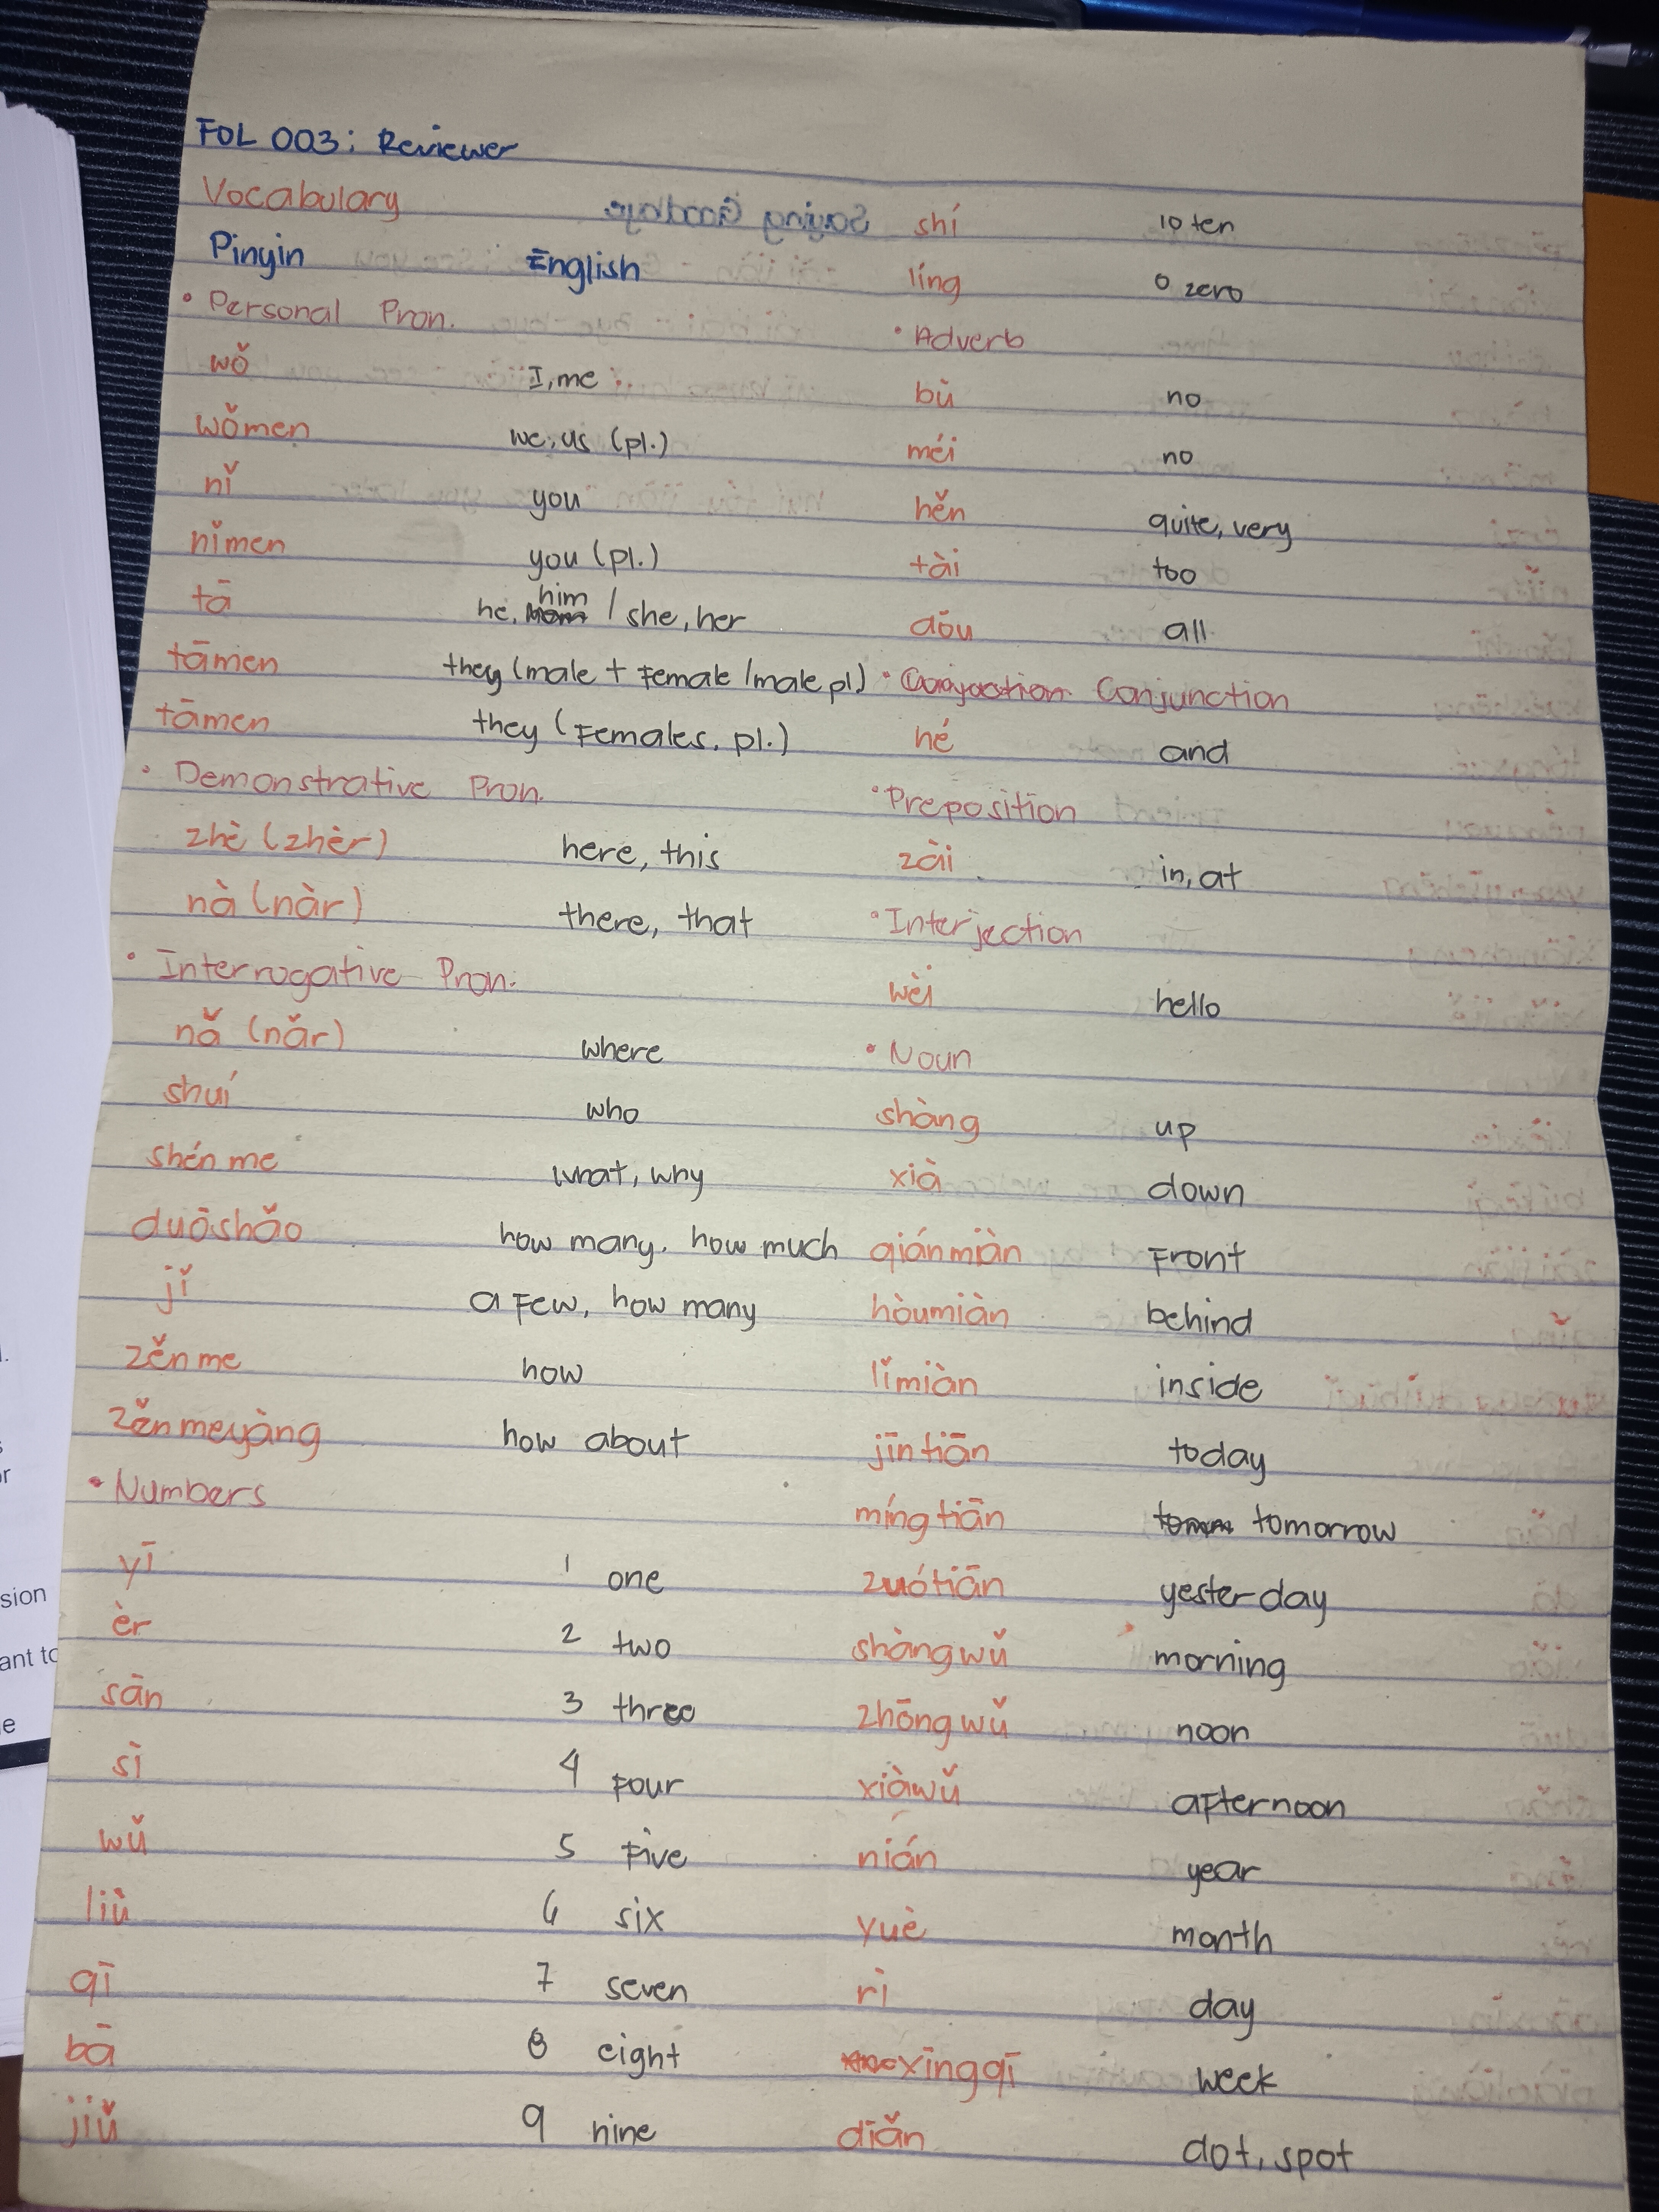 FOL 003: Reviewer
Vocabulary
Pinyin English
• Personal Pron.
wǒ I, me
wǒmen we, us (pl.)
nǐ you
nǐmen you (pl.)
tā he, him / she, her
tāmen they (male + Female / male pl)
tāmen they (Females, pl.)
• Demonstrative Pron.
zhè (zhèr) here, this
nà (nàr) there, that
• Interrogative Pron.
nǎ (nǎr) where
shuí who
shén me what, why
duōshǎo how many, how much
jǐ a Few, how many
zěn me how
zěn meyàng how about
• Numbers
yī 1 one
èr 2 two
sān 3 three
sì 4 Four
wǔ 5 Five
liù 6 six
qī 7 seven
bā 8 eight
jiǔ 9 nine
shí 10 ten
líng 0 zero
• Adverb
bù no
méi no
hěn quite, very
tài too
dōu all
• Conjunction
hé and
• Preposition
zài in, at
• Interjection
wèi hello
• Noun
shàng up
xià down
qiánmiàn Front
hòumiàn behind
lǐmiàn inside
jīntiān today
míngtiān tomorrow
zuótiān yesterday
shàngwǔ morning
zhōngwǔ noon
xiàwǔ afternoon
nián year
yuè month
rì day
xīngqī week
diǎn dot, spot
sion
ant to